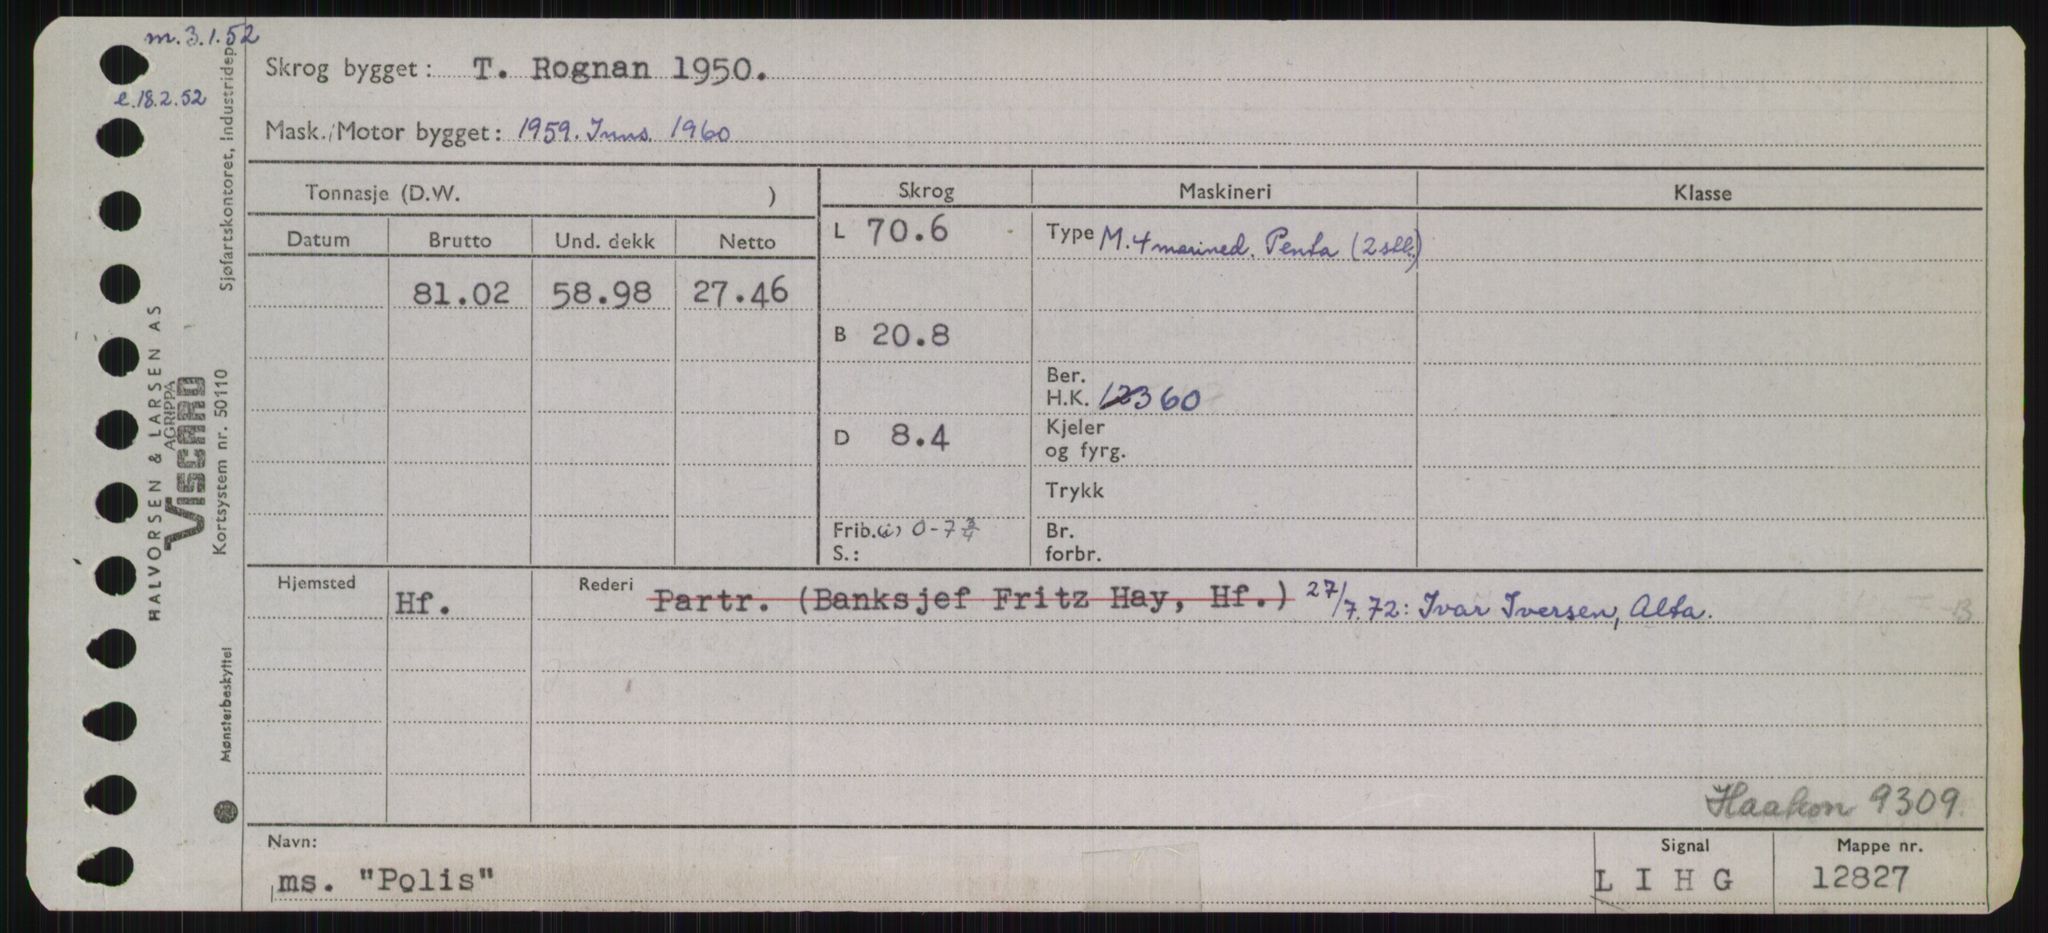 m. 3.1.52
e. 18.2.52
Skrog bygget: T. Rognan 1950.
Mask./Motor bygget: 1959. Inns. 1960
Tonnasje (D.W. )
Skrog
Maskineri
Klasse
Datum Brutto Und. dekk Netto
81.02 58.98 27.46
L 70.6
Type M. 4 marined. Penta (2 stk.)
B 20.8
Ber.
H.K. 360
D 8.4
Kjeler
og fyrg.
Trykk
Frib.(i) 0-7 3/4
S.:
Br.
forbr.
Hjemsted
Hf.
Rederi
Partr. (Banksjef Fritz Hay, Hf.) 27/7.72: Ivar Iversen, Alta.
Haakon 9309.
Navn:
ms. "Polis"
Signal
L I H G
Mappe nr.
12827
Sjøfartskontoret, Industridep.
HALVORSEN & LARSEN AS
AGRIPPA
Viscard
Kortsystem nr. 50110
Mønsterbeskyttel